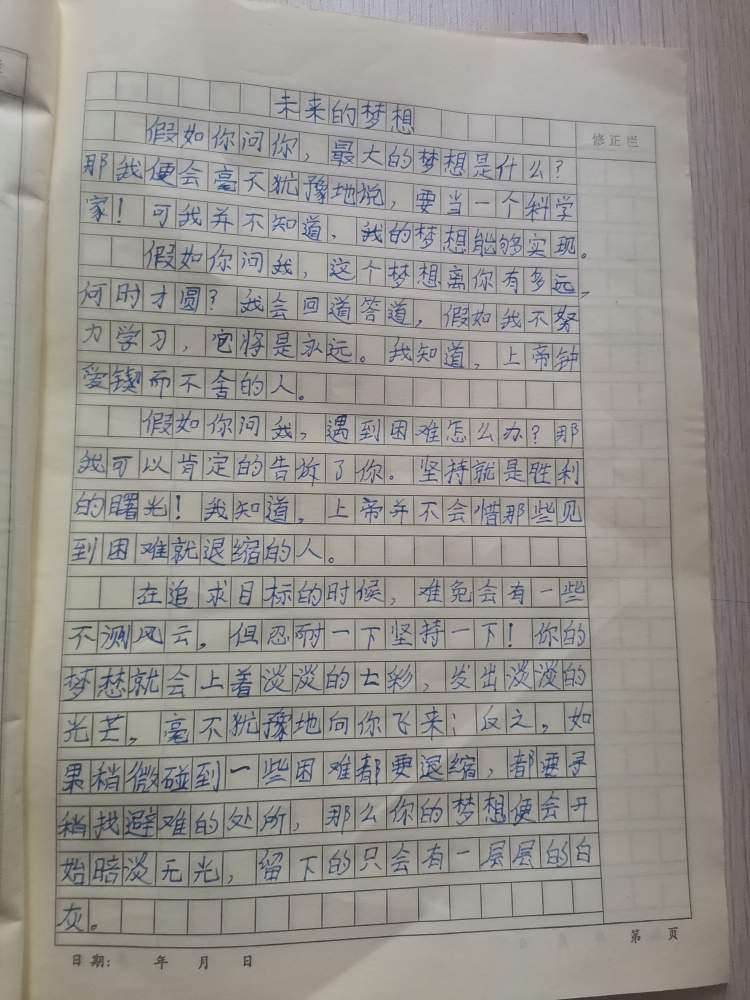 未来的梦想
修正栏
假如你问你，最大的梦想是什么？
那我便会毫不犹豫地说，要当一个科学
家！可我并不知道，我的梦想能够实现。
假如你问我，这个梦想离你有多远，
何时才圆？我会回道答道，假如我不努
力学习，它将是永远。我知道，上帝钟
爱锲而不舍的人。
假如你问我，遇到困难怎么办？那
我可以肯定的告诉了你。坚持就是胜利
的曙光！我知道，上帝并不会惜那些见
到困难就退缩的人。
在追求目标的时候，难免会有一些
不测风云，但忍耐一下坚持一下！你的
梦想就会上着淡淡的七彩，发出淡淡的
光芒，毫不犹豫地向你飞来；反之，如
果稍微碰到一些困难都要退缩，都要寻
稍找避难的处所，那么你的梦想便会开
始暗淡无光，留下的只会有一层层的白
灰。
第 页
日期： 年 月 日